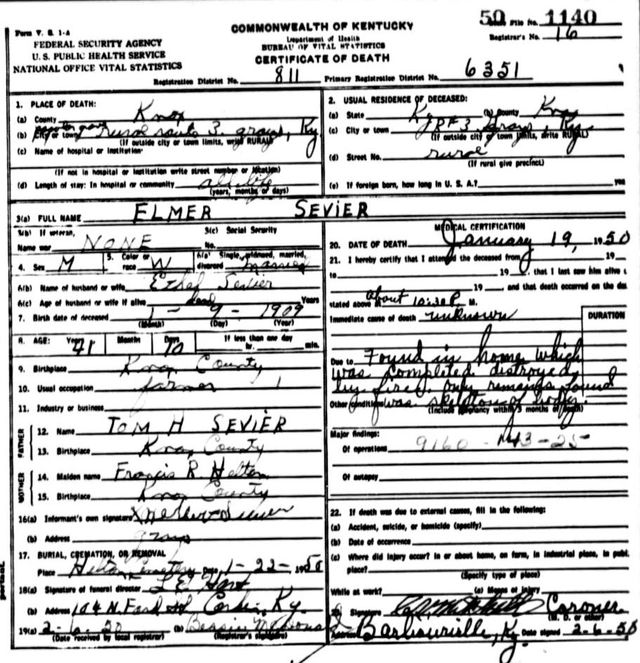 Form V. S. 1-A
FEDERAL SECURITY AGENCY
U. S. PUBLIC HEALTH SERVICE
NATIONAL OFFICE VITAL STATISTICS
COMMONWEALTH OF KENTUCKY
Department of Health
BUREAU OF VITAL STATISTICS
CERTIFICATE OF DEATH
50 File No. 1140
Registrar's No. 16
Registration District No. 811 Primary Registration District No. 6351
1. PLACE OF DEATH:
(a) County Knox
(b) City or town rural route 3, grays, Ky
(If outside city or town limits, write RURAL)
(c) Name of hospital or institution
(If not in hospital or institution write street number or location)
(d) Length of stay: In hospital or community all life
(years, months or days)
2. USUAL RESIDENCE OF DECEASED:
(a) State Ky (b) County Knox
(c) City or town RF 3 Grays Ky.
(If outside city or town limits, write RURAL)
(d) Street No. rural
(If rural give precinct)
(e) If foreign born, how long in U. S. A.?
3(a) FULL NAME ELMER SEVIER
3(b) If veteran, Name war NONE 3(c) Social Security No.
4. Sex M 5. Color or race W 6(a) Single, widowed, married, divorced married
6(b) Name of husband or wife Ethel Sevier
6(c) Age of husband or wife if alive dead Years
7. Birth date of deceased 1 - 9 - 1909
(Month) (Day) (Year)
8. AGE: Years 41 Months Days 10 If less than one day hr. min.
9. Birthplace Knox County
10. Usual occupation farmer
11. Industry or business
FATHER
12. Name TOM H SEVIER
13. Birthplace Knox County
MOTHER
14. Maiden name Francis R Helton
15. Birthplace Knox County
16(a) Informant's own signature Sevier
(b) Address grays
17. BURIAL, CREMATION, OR REMOVAL
Place Helton Cemetery Date 1-22-1950
18(a) Signature of funeral director L E Hart
(b) Address 104 N. Ky.
19(a) 2-6-50 (b) Bessie McDonald
(Date received by local registrar) (Registrar's signature)
MEDICAL CERTIFICATION
20. DATE OF DEATH January 19, 1950
21. I hereby certify that I attended the deceased from
19 to 19 , that I last saw him alive
19 and that death occurred on the date
stated above at About 10:30 P. M.
Immediate cause of death unknown
DURATION
Due to Found in home which
was completed distroyed
by fire. Only remains found
Other conditions was skeleton of body.
(Include pregnancy within 3 months of death)
Major findings:
Of operations 9160 - 13-25
Of autopsy
22. If death was due to external causes, fill in the following:
(a) Accident, suicide, or homicide (specify)
(b) Date of occurrence
(c) Where did injury occur? In or about home, on farm, in industrial place, in publ
place?
(Specify type of place)
While at work? (e) Means of injury
23. Signature Coroner
(M. D. or other)
Address Barbourville, Ky. Date signed 2-6-50